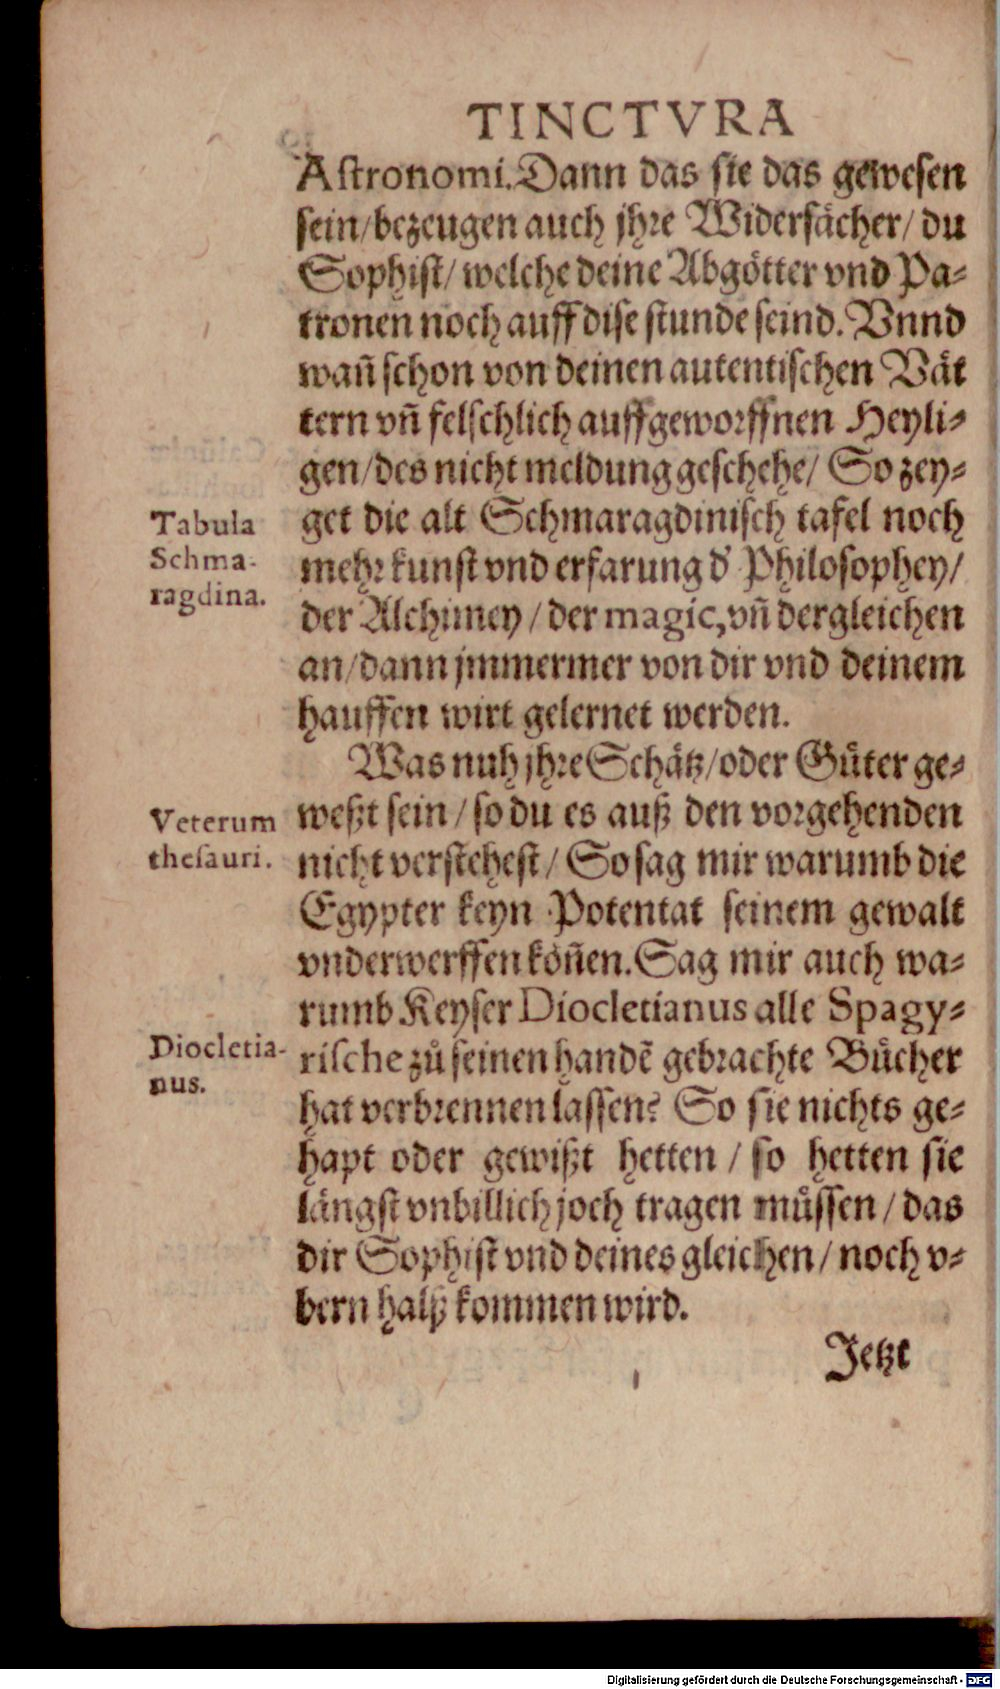 TINCTVRA
Astronomi. Dann das sie das gewesen
sein/bezeugen auch jhre Widersächer/ du
Sophist/ welche deine Abgötter vnd Pa-
tronen noch auff dise stunde seind. Vnnd
wañ schon von deinen autentischen Vät
tern vñ felschlich auffgeworffnen Heyli-
gen/des nicht meldung geschehe/ So zey-
Tabula
Schma-
ragdina.
get die alt Schmaragdinisch tafel noch
mehr kunst vnd erfarung d' Philosophey/
der Alchimey / der magic, vñ dergleichen
an/dann jmmermer von dir vnd deinem
hauffen wirt gelernet werden.
Was nuh jhre Schätz/oder Güter ge-
Veterum
thesauri.
weßt sein / so du es auß den vorgehenden
nicht verstehest/ So sag mir warumb die
Egypter keyn Potentat seinem gewalt
vnderwerffen köñen. Sag mir auch wa-
rumb Keyser Diocletianus alle Spagy-
Diocletia-
nus.
rische zů seinen handẽ gebrachte Bücher
hat verbrennen lassen? So sie nichts ge-
hapt oder gewißt hetten / so hetten sie
längst vnbillich joch tragen müssen / das
dir Sophist vnd deines gleichen / noch v-
bern halß kommen wird.
Jetzt
Digitalisierung gefördert durch die Deutsche Forschungsgemeinschaft - DFG